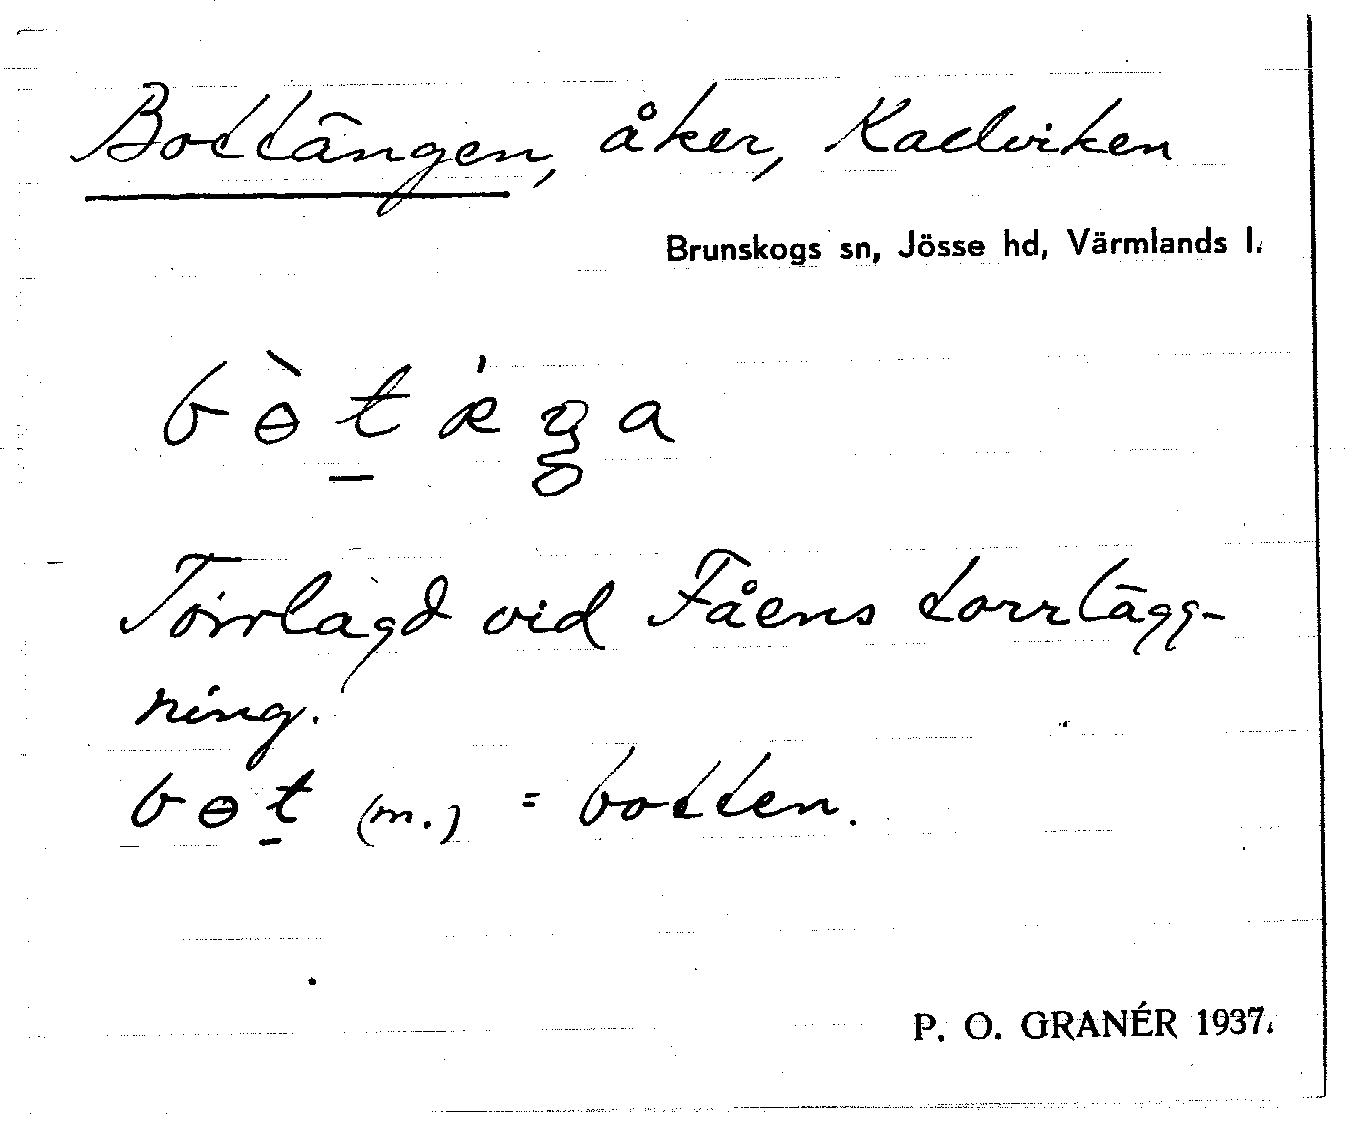 Bottängen, åker, Kaelviken
Brunskogs sn, Jösse hd, Värmlands l.
Torrlagd vid Fåens torrlägg-
ning.
bɵt̠ (m.) = botten.
P. O. GRANÉR 1937.